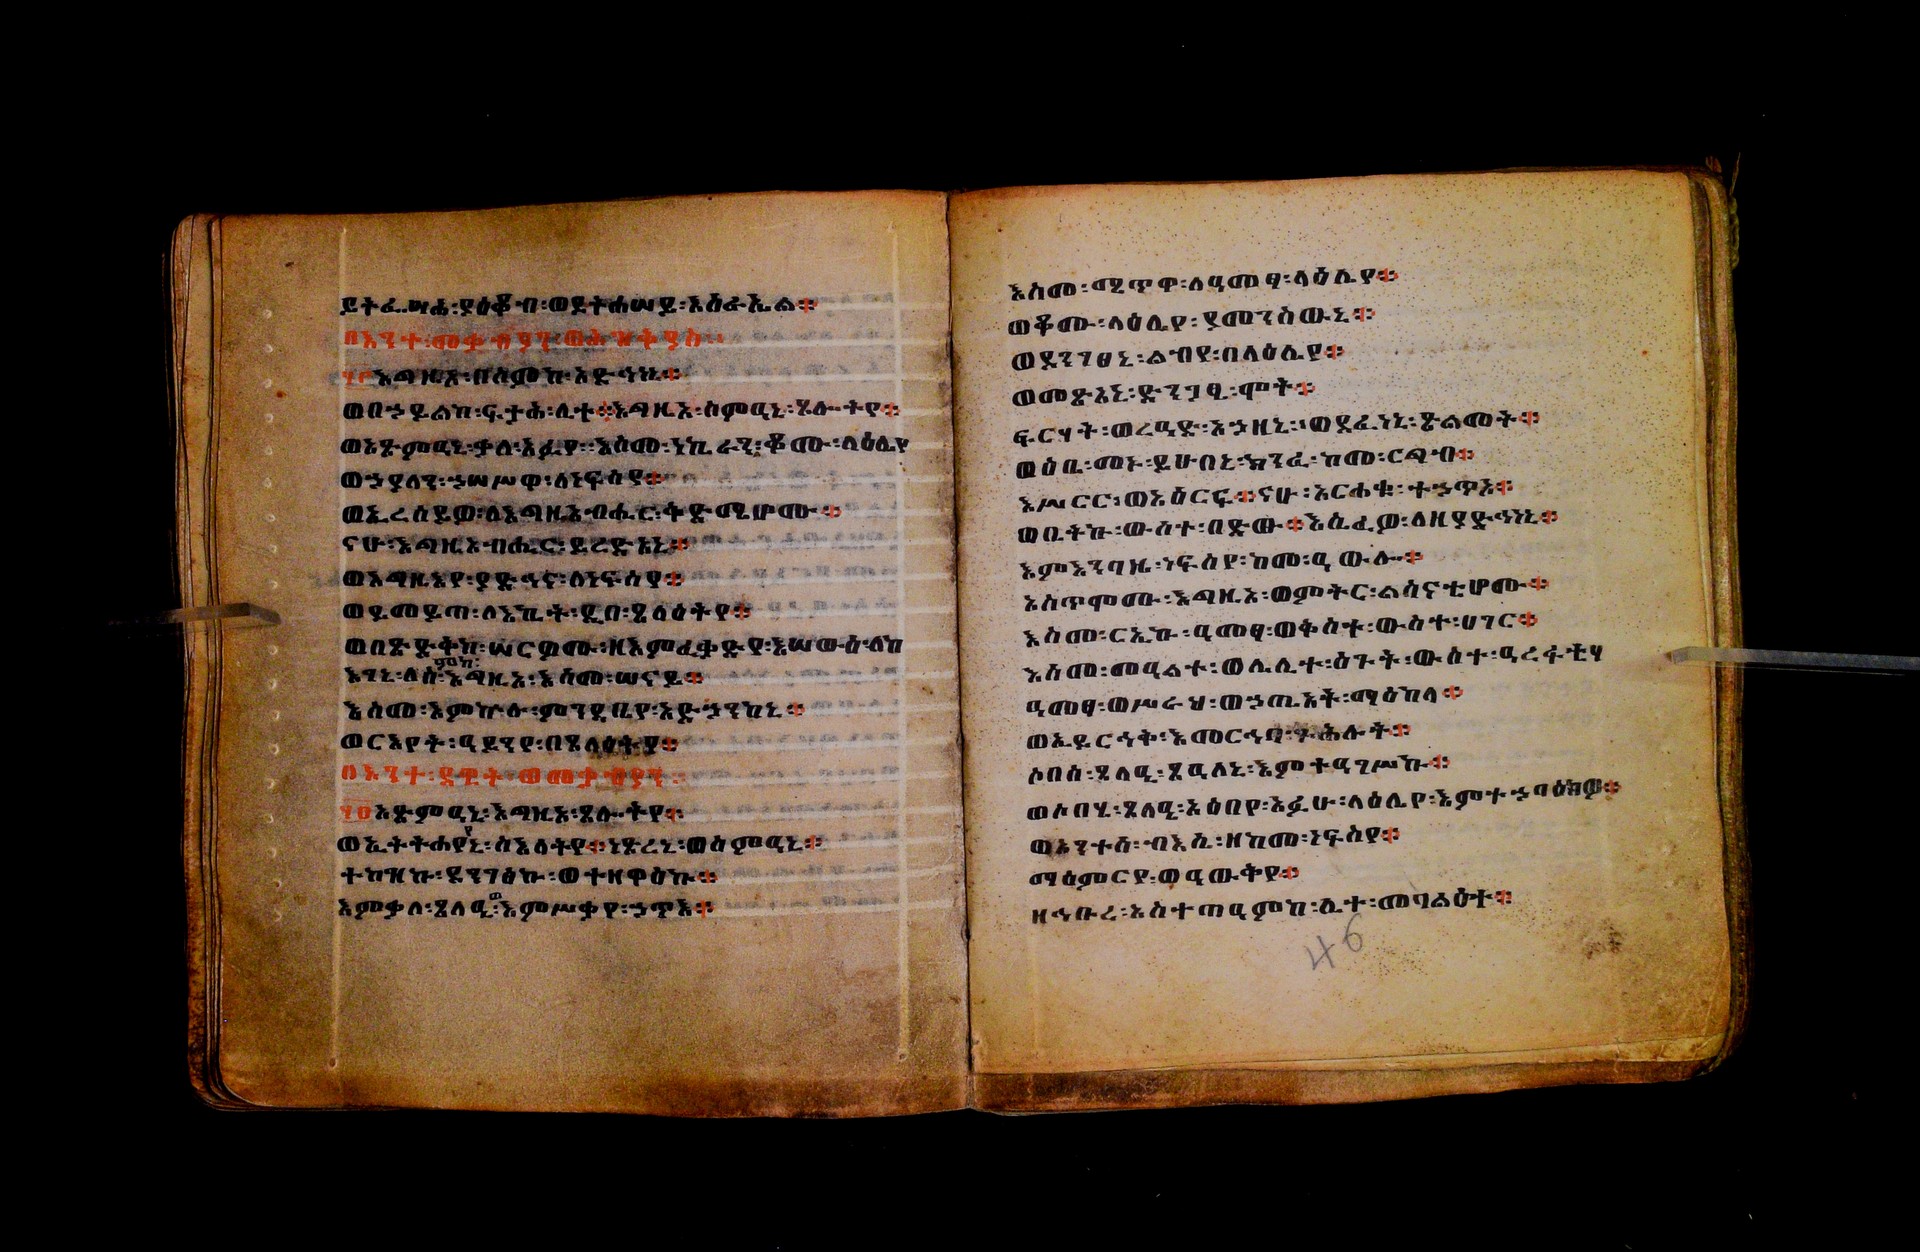 ይትፌሣሕ፡ያዕቆብ፡ወይተሐሠይ፡እስራኤል፨
በእንተ፡መቃብያን፡ወሕዝቅያስ፡፡
፶፫እግዚኦ፡በስምከ፡አድኅነኒ፨
ወበኃይልከ፡ፍታሕ፡ሊተ፨እግዚኦ፡ስምዓኒ፡ጸሎትየ፨
ወአፅምዓኒ፡ቃለ፡አፉየ፡፡እስመ፡ነኪራን፡ቆሙ፡ላዕሌየ
ወኃያላን፡ኃሠሥዋ፡ለነፍስየ፨
ወኢረሰይዎ፡ለእግዚአብሔር፡ቅድሜሆሙ፨
ናሁ፡እግዚአብሔር፡ይረድአኒ፨
ወእግዚእየ፡ያድኅና፡ለነፍስየ፨
ወይመይጣ፡ለእኪት፡ዲበ፡ጸላዕትየ፨
ወበጽድቅከ፡ሠርዎሙ፡ዘእምፈቃድየ፡እሠውዕ፡ለከ
እገኒ፡ለስምከ፡እግዚኦ፡እስመ፡ሠናይ፨
እስመ፡እምኵሉ፡ምንዳቤየ፡አድኃንከኒ፨
ወርእየት፡ዓይንየ፡በጸላዕትየ፨
በእንተ፡ዳዊት፡ወመቃብያን፡፡
፶፬አፅምዓኒ፡እግዚኦ፡ጸሎትየ፨
ወኢትትሐየየኒ፡ስእለትየ፨ነጽረኒ፡ወስምዓኒ፨
ተከዝኩ፡ደንገፅኩ፡ወተዘዋዕኩ፨
እምቃለ፡ጸላዒ፡ወእምሥቃየ፡ኃጥእ፨
እስመ፡ሚጥዋ፡ለዓመፃ፡ላዕሌየ፨
ወቆሙ፡ላዕሌየ፡ያመንስውኒ፨
ወደንገፀኒ፡ልብየ፡በላዕሌየ፨
ወመጽአኒ፡ድንጋፄ፡ሞት፨
ፍርሃት፡ወረዓድ፡አኃዘኒ፡ወደፈነኒ፡ጽልመት፨
ወዕቤ፡መኑ፡ይሁበኒ፡ክንፈ፡ከመ፡ርግብ፨
እሥርር፡ወአዕርፍ፨ናሁ፡አርሐቁ፡ተኃጥአ፨
ወቤትኩ፡ውስተ፡በድው፨እሴፈዎ፡ለዘያድኅነኒ፨
እምእንባዜ፡ነፍስየ፡ከመ፡ዓውሎ፨
አስጥሞሙ፡እግዚኦ፡ወምትር፡ልሳናቲሆሙ፨
እስመ፡ርኢኩ፡ዓመፃ፡ወቅስተ፡ውስተ፡ሀገር፨
እስመ፡መዓልተ፡ወሌሊተ፡ዕጉት፡ውስተ፡ዓረፋቲሃ
ዓመፃ፡ወሥራህ፡ወኃጢአት፡ማዕከላ፨
ወኢይርኅቅ፡እመርኅባ፡ጉሕሉት፨
ሶበሰ፡ጸላዒ፡ጸዓለኒ፡እምተዓገሥኩ፨
ወሶበሂ፡ጸላዒ፡አዕበየ፡አፉሁ፡ላዕሌየ፡እምተኃባዕክዎ፨
ወአንተሰ፡ብእሲ፡ዘከመ፡ነፍስየ፨
ማዕምርየ፡ወዓውቅየ፨
ዘኅቡረ፡አስተጠዓምከ፡ሊተ፡መባልዕተ፨
46